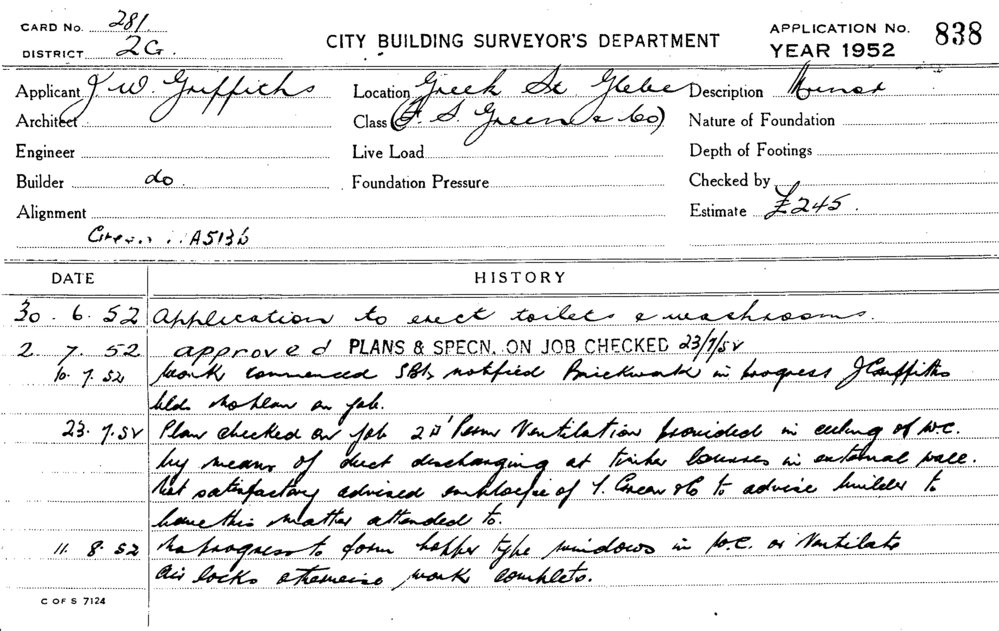 CARD No. 281
DISTRICT 2G.
CITY BUILDING SURVEYOR'S DEPARTMENT
APPLICATION No. 838
YEAR 1952
Applicant J W. Griffiths Location Greek St Glebe Description Minor
Architect Class (F. S. Green & Co) Nature of Foundation
Engineer Live Load Depth of Footings
Builder do Foundation Pressure Checked by
Alignment Estimate £245.
A513b
DATE HISTORY
30. 6. 52 Application to erect toilets & washrooms.
2. 7. 52 approved PLANS & SPECN. ON JOB CHECKED 23/7/52
10. 7. 52 Work commenced notified Brickwork in progress J Griffiths
bldr No plan on job.
23. 7. 52 Plan checked on job Perm Ventilation provided in ceiling of W.C.
by means of duct discharging at timber louvres in external wall.
Not satisfactory advised employee of Green & Co to advise builder to
have this matter attended to.
11. 8. 52 No progress to form hopper type windows in W.C. or Ventilate
Air locks otherwise work complete.
C OF S 7124